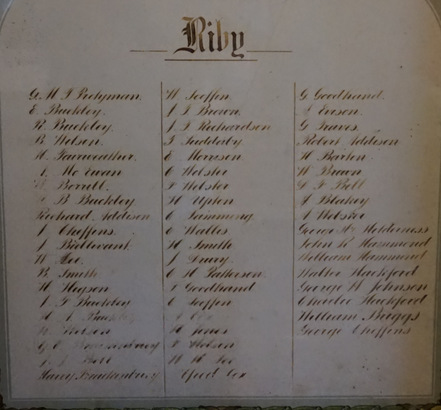 Riby
G. M. J. Pretyman
E. Buckley.
R. Buckley.
B. Wilson.
H. Fairweather.
Mc Ewan
Borrill.
B Buckley
Richard Addison
J Cheffins.
J
W
B. Smith
W Hyson
J. T Buckley
A. Buckley
Wilson
G. C.
J. J.
Harry Brackenbury
H. Soffin.
J. J Brown.
J. J Richardson
J. Suddaby
E Morrison
C Webster
J Webster
H Upton
C Tamming
C Wallis
H Smith
J Drury.
C H Patterson.
J Goodhand
C Soffin.
Cox
H Jones
J Wilson
W H Fox
Cox
G Goodhand.
A Evison.
G Graves.
Robert Addison
H Barton
W Brown
G. T. Bell
A Blakey
A Webster
George W. Holderness
John R Hammond
William Hammond
Walter Blackford
George W Johnson
Charles Blackford
William Briggs
George Cheffins